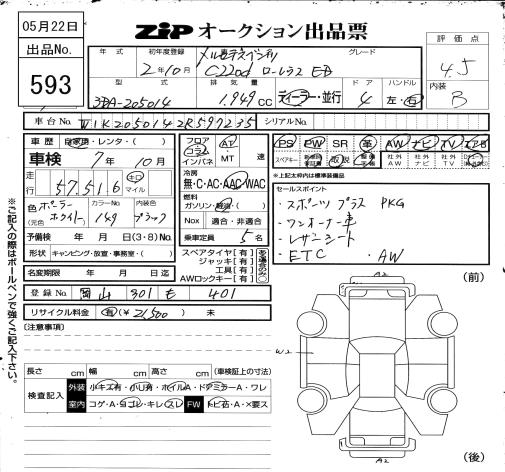 05月22日
出品No.
593
ZiP オークション出品票
年式 初年度登録 グレード
2年10月
メルセデスベンツ
C220d ローレウス ED
評価点
4.5
内装
B
型式 排気量 ドア ハンドル
3DA-205014 1.949cc ディーラー・並行 4 左・右
車台No. W1K2050142R597235 シリアルNo.
車歴 自家用・レンタ・( )
車検 7年10月
走行 57,516 キロ マイル
色(元色) ポーラーホワイト カラーNo. 149 内装色 ブラック
予備検 年 月 日(3・8)No.
形状 キャンピング・放宣・事務室・( )
フロア コラム インパネ AT MT 速
冷房
無・C・AC・AAC・WAC
燃料
ガソリン・軽油( )
Nox 適合・非適合
乗車定員 5名
PS PW SR 革 AW ナビ TV エアB
スペアキー 取説 社外AW 社外ナビ 社外TV
*上記太枠内は標準装備品
セールスポイント
・スポーツプラス PKG
・ワンオーナー車
・レザーシート
・ETC ・AW
スペアタイヤ[有]
ジャッキ[有]
工具[有]
AWロックキー[有]
名変期限 年 月 日迄
登録No. 岡山 301 も 401
リサイクル料金 有(¥ 21,500) 未
(注意事項)
長さ cm 幅 cm 高さ cm (車検証上の寸法)
検査記入
外装 小キズ有・小U有・ホイルA・ドアミラーA・ワレ
室内 コゲ・A・ヨゴレ・キレ・スレ FW トビ石・A・×要ス
※ご記入の際はボールペンで強くご記入下さい。
(前)
A2
W2
A2
(後)